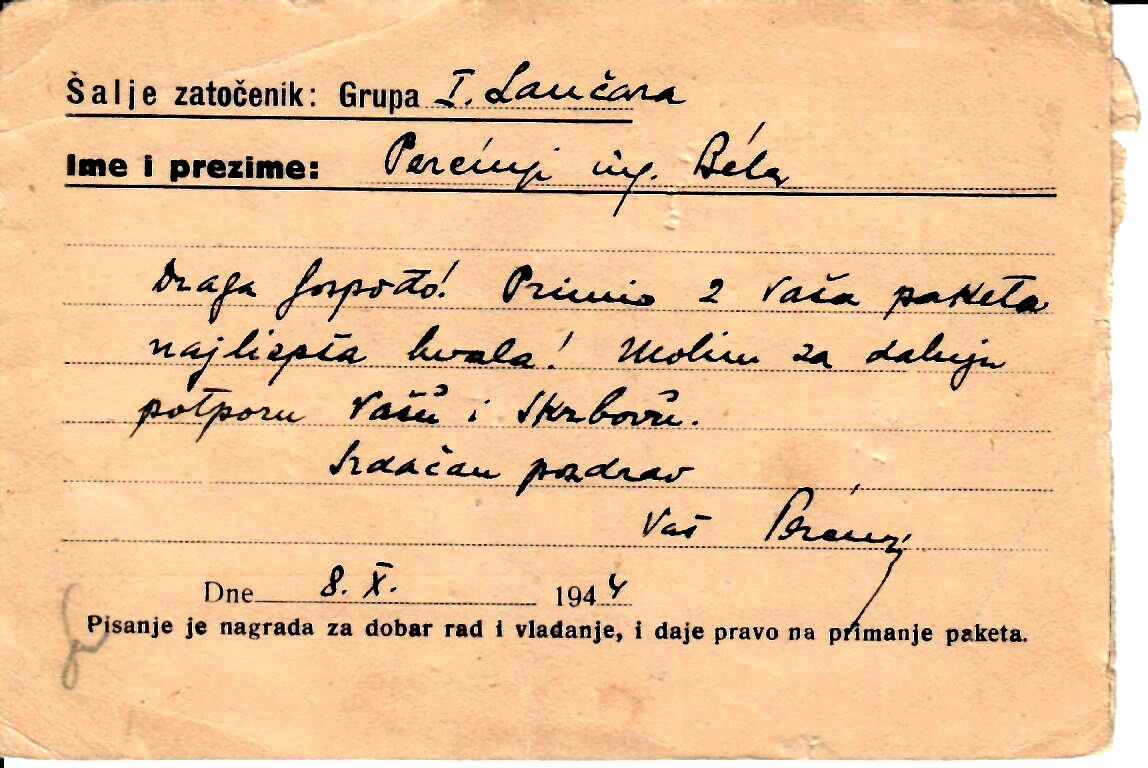 Šalje zatočenik: Grupa I. Lančara
Ime i prezime: ing. Béla
Draga gospođo! Primio 2 Vaša paketa
najlijepša hvala! Molim za daljnju
potporu Vašu i Skrbovu.
Srdačan pozdrav
Vaš
Dne 8. X. 1944
Pisanje je nagrada za dobar rad i vladanje, i daje pravo na primanje paketa.